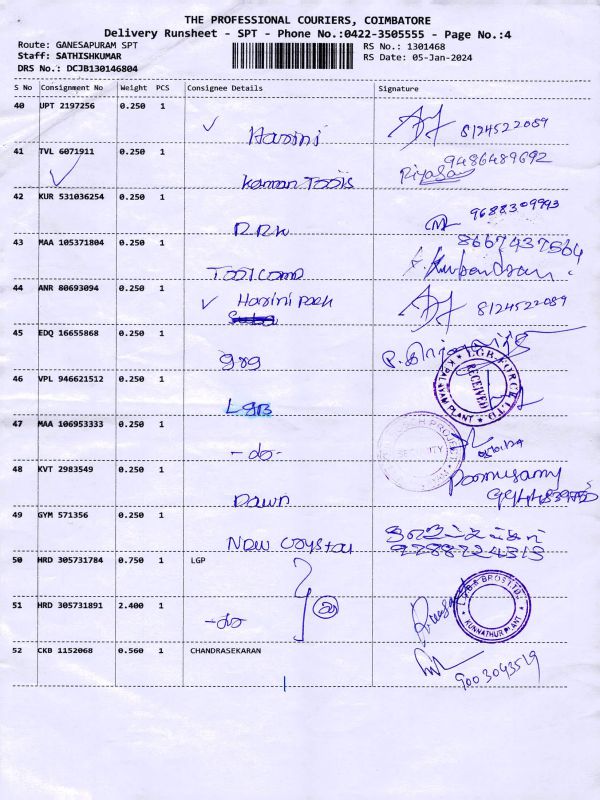 THE PROFESSIONAL COURIERS, COIMBATORE
Delivery Runsheet - SPT - Phone No.:0422-3505555 - Page No.:4
Route: GANESAPURAM SPT
RS No.: 1301468
Staff: SATHISHKUMAR
RS Date: 05-Jan-2024
DRS No.: DCJB130146804
S No Consignment No Weight PCS Consignee Details Signature
40 UPT 2197256 0.250 1
Harini 8124522089
41 TVL 6071911 0.250 1
9486489692
Kannan Tools
42 KUR 531036254 0.250 1
9688309943
RRK
43 MAA 105371804 0.250 1
8667437564
Toolcomp
44 ANR 80693094 0.250 1
Harini Pack 8124522089
45 EDQ 16655868 0.250 1
grg
46 VPL 946621512 0.250 1
LGB
L.G.B. FORGE LTD
RECEIVED
K.PALAYAM PLANT
47 MAA 106953333 0.250 1
-do-
48 KVT 2983549 0.250 1
Ponnusamy
Dawn
49 GYM 571356 0.250 1
New Crystal
9788724313
50 HRD 305731784 0.750 1 LGP
51 HRD 305731891 2.400 1
-do-
L.G.B & BROS LTD.
KUNNATHUR PLANT
52 CKB 1152068 0.560 1 CHANDRASEKARAN
9003043519